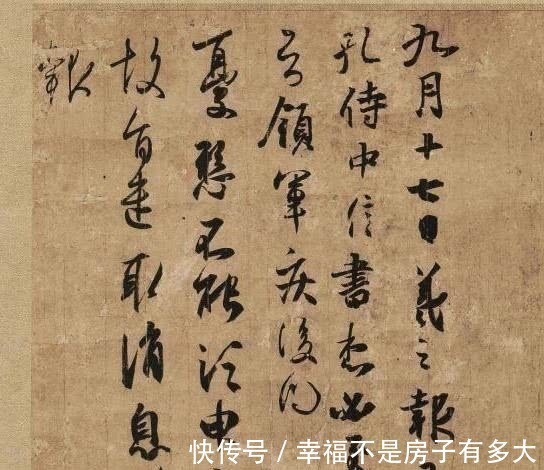 九月十七日羲之報
孔侍中信書想必
知領軍疾後問
憂懸不能須臾
故旨遣取消息
報
快传号 / 幸福不是房子有多大